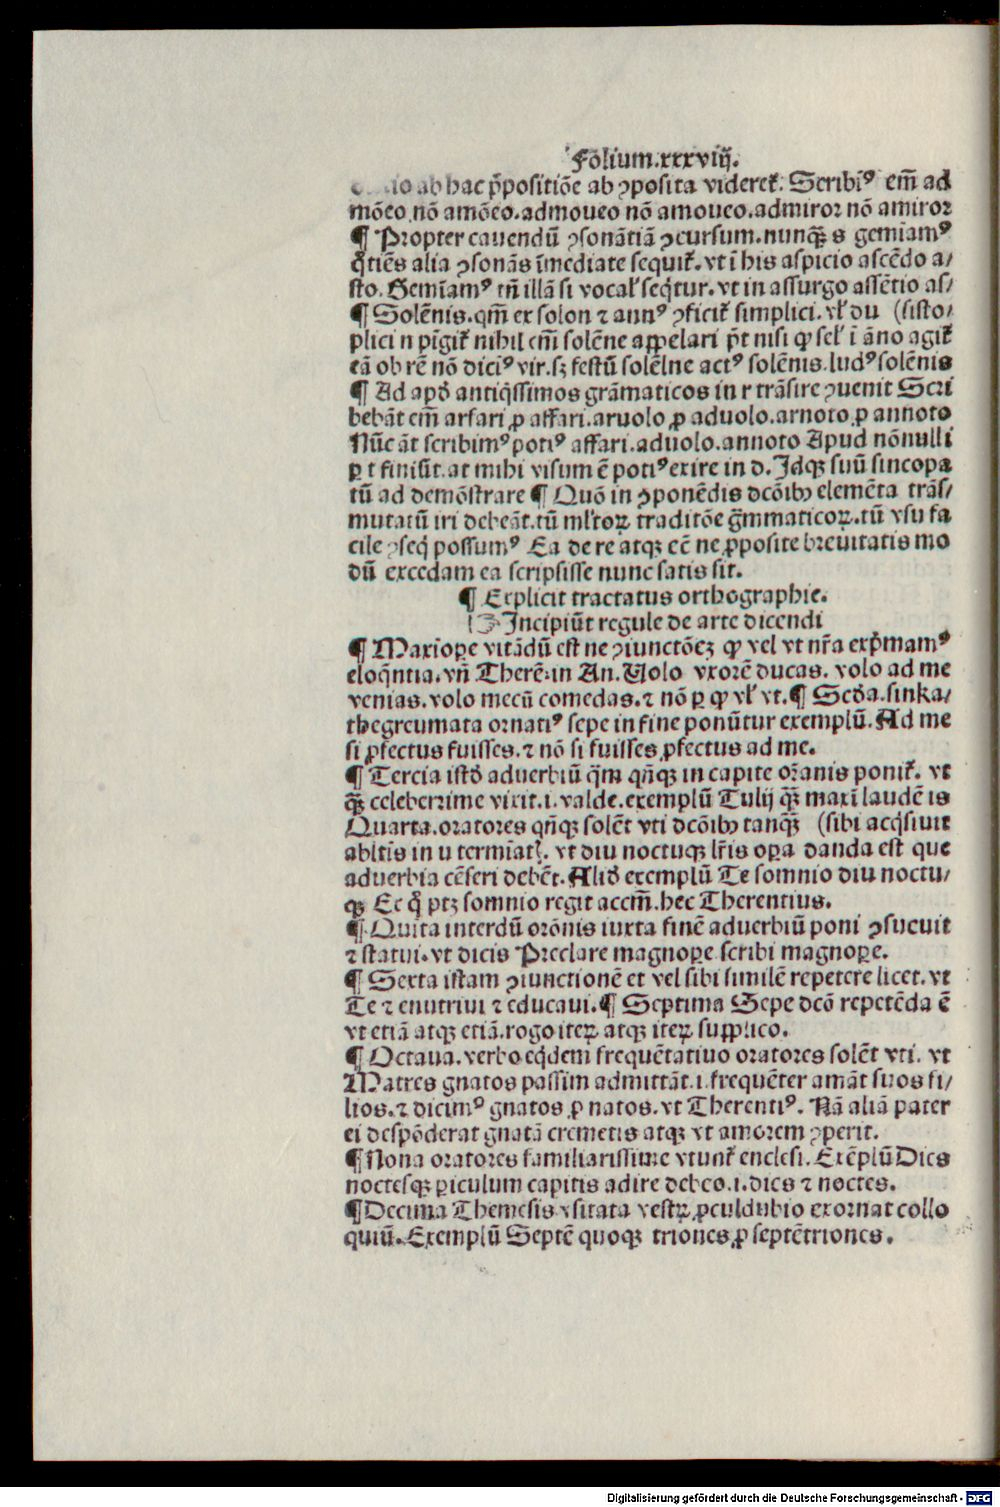 Foliū.xxxviij.
ab hac p̄positiōe ab ꝯposita videret᷑. Scribiꝰ em̄ ad
mōeo.nō amōeo.admoueo nō amoueo.admiror nō amiror
¶ Propter cauendū ꝯsonātiā ꝯcursum.nunqꝫ s gemīamꝰ
q̊tiēs alia ꝯsonās īmediate sequit᷑. vt ī his aspicio ascēdo a/
sto. Gemīamꝰ tn̄ illā si vocaľ seq̇tur. vt in assurgo assētio as/
¶ Solēnis.qm̄ ex solon ⁊ annꝰ ꝯficit᷑ simplici. vľ du (sisto/
plici n pīgit᷑ nihil em̄ solēne appelari p̄t nisi ꝙ seľ ī āno agit᷑
eā ob rē nō diciꝰ vir.sꝫ festū solēne actꝰ solēnis.ludꝰ solēnis
¶ Ad apd̕ antiq̇ssimos grāmaticos in r trāsire ꝯuenit Scri
bebāt em̄ arfari ꝓ affari.aruolo ꝓ aduolo.arnoto ꝓ annoto
Nūc āt scribimꝰ potiꝰ affari.aduolo.annoto Apud nōnulli
ꝑ t finisūt.at mihi visum ē potiꝰ exire in d. Idqꝫ suū sincopa
tū ad demōstrare ¶ Quō in ꝯponēdis dcōibꝰ elemēta trās/
mutatū iri debeāt.tū mľtoꝝ traditōe gͣmmaticoꝝ.tū vsu fa
cile ꝯseq̇ possumꝰ Ea de re atqꝫ eē ne ꝓposite breuitatis mo
dū excedam ea scripsisse nunc satis sit.
¶ Explicit tractatus orthographie.
☞ Incipiūt regule de arte dicendi
¶ Maxīoꝑe vitādū est ne ꝯiunctōeꝫ ꝙ vel vt nr̄a exp̄mamꝰ
eloq̄ntia.vn̄ Therē.in An.Uolo vxorē ducas. volo ad me
venias.volo mecū comedas.⁊ nō ꝑ ꝙ vľ vt.¶ Scd̕a.sinka/
thegreumata ornatiꝰ sepe in fine ponūtur exemplū. Ad me
si ꝓfectus fuisses.⁊ nō si fuisses ꝓfectus ad me.
¶ Tercia istd̕ aduerbiū qͣm qn̄qꝫ in capite orānis ponit᷑. vt
qͣꝫ celeberrime vixit.i.valde.exemplū Tulij qͣꝫ maxī laudē is
Quarta.oratores qn̄qꝫ solēt vti dcōibꝰ tanqͣꝫ (sibi acq̇siuit
abľtis in u termīatꝭ. vt diu noctuqꝫ lr̄is oꝑa danda est que
aduerbia cēseri debēt. Alid̕ exemplū Te somnio diu noctu/
qꝫ Ec q̊ ptꝫ somnio regit accm̄.hec Therentius.
¶ Quīta interdū orōnis iuxta finē aduerbiū poni ꝯsueuit
⁊ statui.vt dicis Preclare magnoꝑe scribi magnoꝑe.
¶ Sexta istam ꝯiunctionē et vel sibi similē repetere licet. vt
Te ⁊ enutriui ⁊ educaui.¶ Septima Sepe dcō repetēda ē
vt etiā atqꝫ etiā.rogo iteꝝ atqꝫ iteꝝ supplico.
¶ Octaua.verbo eq̇dem frequētatiuo oratores solēt vti. vt
Matres gnatos passim admittāt.i.frequēter amāt suos fi/
lios.⁊ dicimꝰ gnatos ꝓ natos.vt Therentiꝰ. Nā aliā pater
ei despōderat gnatā cremetis atqꝫ vt amorem ꝯperit.
¶ Nona oratores familiarissime vtunt᷑ enclesi. Exēplū Dies
noctesqꝫ ꝑiculum capitis adire debeo.i.dies ⁊ noctes.
¶ Decima Themesis vsitata vestꝝ ꝓculdubio exornat collo
quiū. Exemplū Septē quoqꝫ triones ꝓ septētriones.
Digitalisierung gefördert durch die Deutsche Forschungsgemeinschaft - DFG